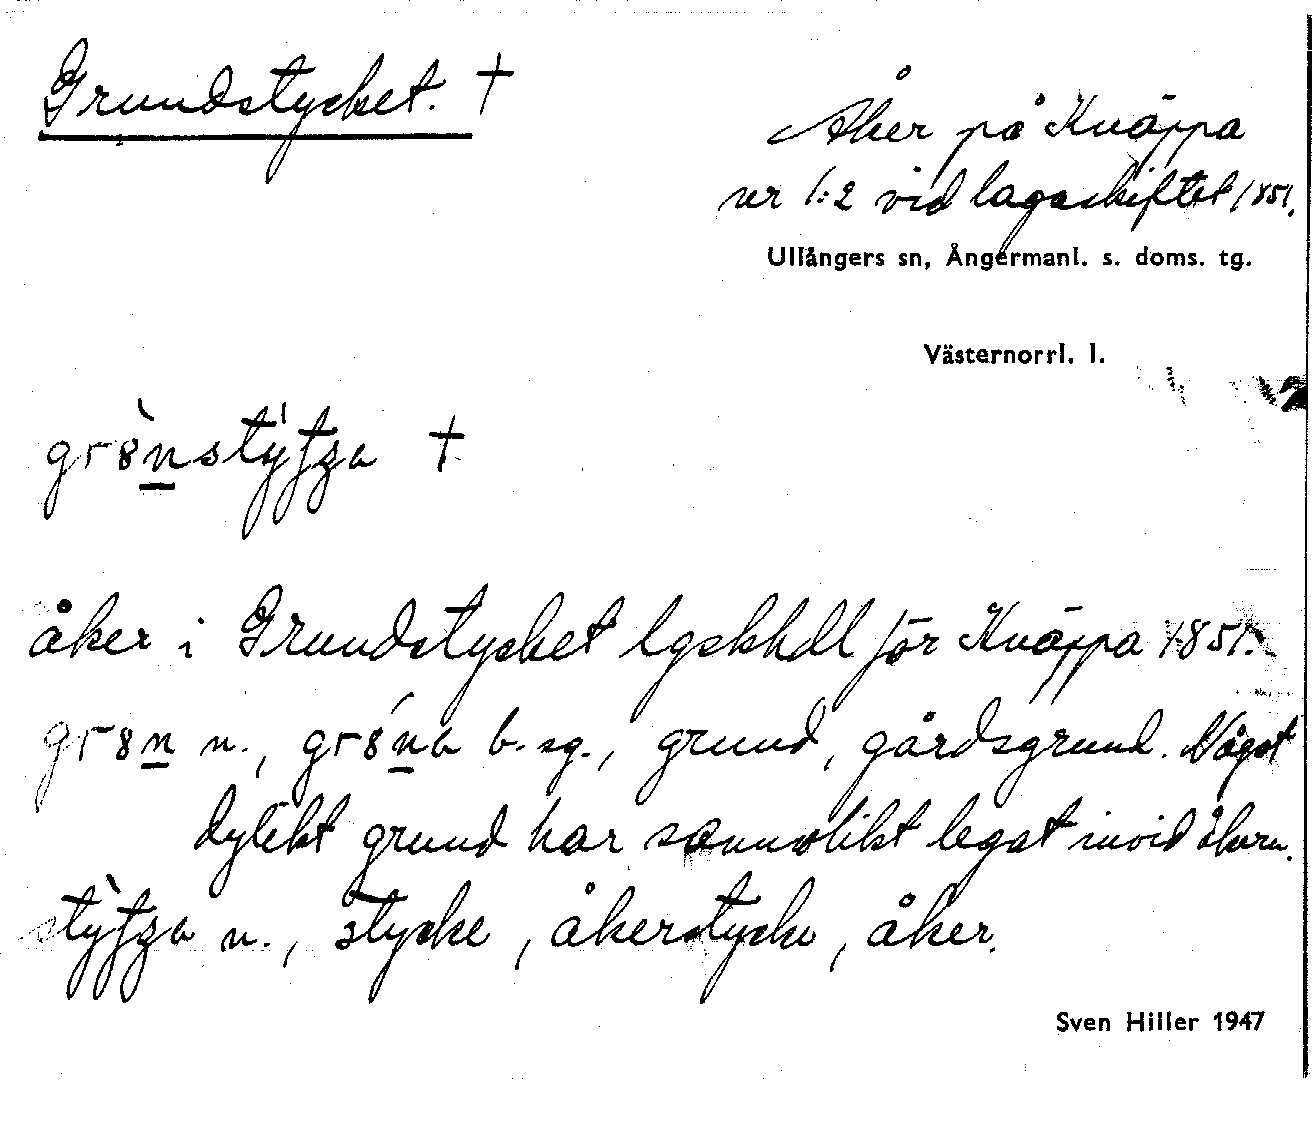 Grundstycket. †
Åker på Knäppa
nr 1:2 vid lagaskiftet 1851.
Ullångers sn, Ångermanl. s. doms. tg.
Västernorrl. l.
gr8̀nstýtza †
åker i Grundstycket lgskhdl för Knäppa 1851.
gr8n n., gr8́na b. sg., grund, gårdsgrund. Något
dylikt grund har sannolikt legat invid åkern.
stỳtza n., stycke, åkerstycke, åker.
Sven Hiller 1947